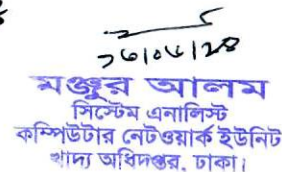 মঞ্জুর আলম
সিস্টেম এনালিস্ট
কম্পিউটার নেটওয়ার্ক ইউনিট
খাদ্য অধিদপ্তর, ঢাকা।